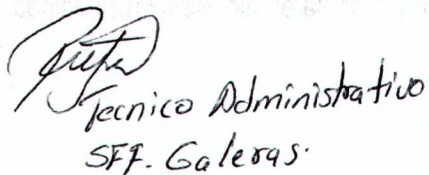 Tecnico Administrativo
SFF. Galeras.